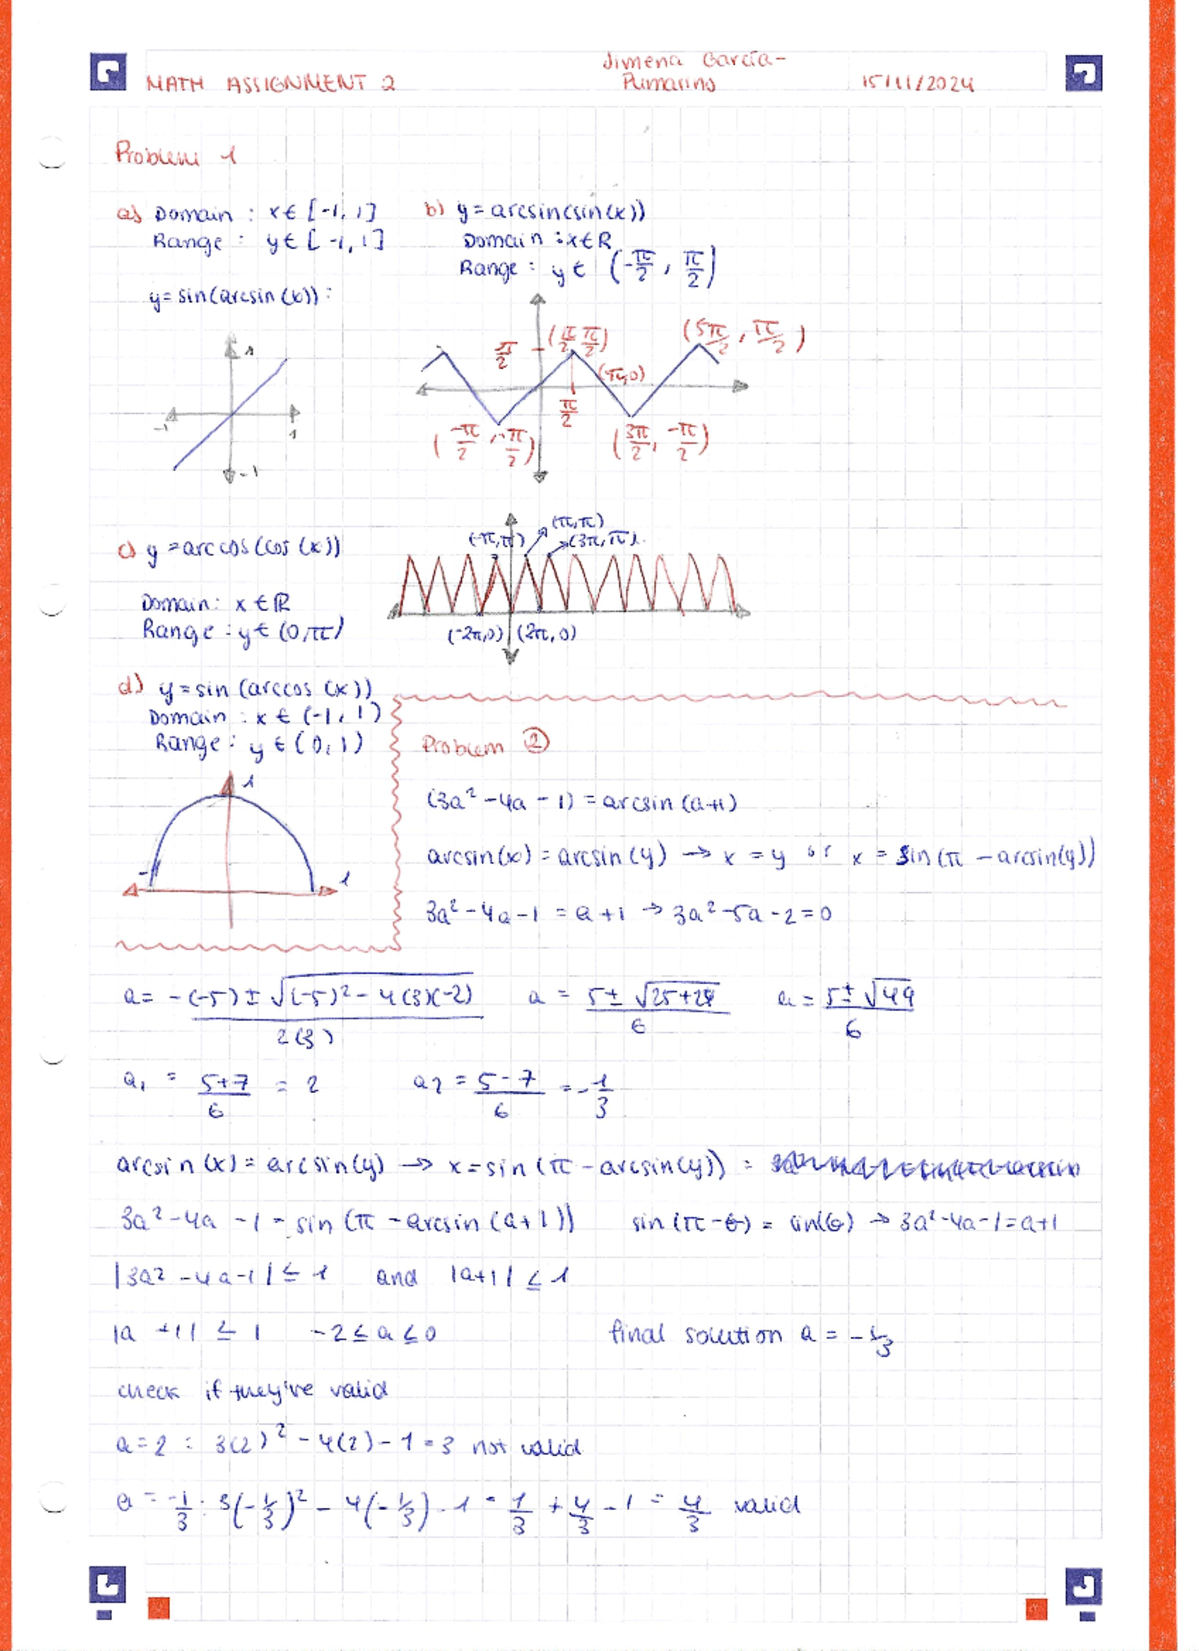 MATH ASSIGNMENT 2
Jimena García-
Pumarino
15/11/2024
Problem 1
a) Domain : x∈ [-1, 1]
Range : y∈ [-1, 1]
y = sin(arcsin(x)) :
1
-1
1
-1
b) y = arcsin(sin(x))
Domain : x∈R
Range : y∈ (-π/2, π/2)
π/2
(π/2, π/2)
(5π/2, π/2)
(π, 0)
π/2
(-π/2, -π/2)
(3π/2, -π/2)
c) y = arccos(cos(x))
Domain : x∈ℝ
Range : y∈ (0, π)
(-π, π)
(π, π)
(3π, π)
(-2π, 0)
(2π, 0)
d) y = sin(arccos(x))
Domain : x∈ (-1, 1)
Range : y∈ (0, 1)
1
1
Problem ②
(3a² - 4a - 1) = arcsin(a+1)
arcsin(x) = arcsin(y) → x = y or x = sin(π - arcsin(y))
3a² - 4a - 1 = a + 1 → 3a² - 5a - 2 = 0
a = -(-5) ± √(-5)² - 4(3)(-2) / 2(3)
a = 5 ± √25+24 / 6
a = 5 ± √49 / 6
a₁ = 5+7/6 = 2
a₂ = 5-7/6 = -1/3
arcsin(x) = arcsin(y) → x = sin(π - arcsin(y)) =
3a² - 4a - 1 = sin(π - arcsin(a+1)) sin(π-θ) = sin(θ) → 3a² - 4a - 1 = a + 1
|3a² - 4a - 1| ≤ 1 and |a+1| ≤ 1
|a +1| ≤ 1 -2 ≤ a ≤ 0
final solution a = -1/3
check if they've valid
a = 2 : 3(2)² - 4(2) - 1 = 3 not valid
a = -1/3 : 3(-1/3)² - 4(-1/3) - 1 = 1/3 + 4/3 - 1 = 4/3 valid